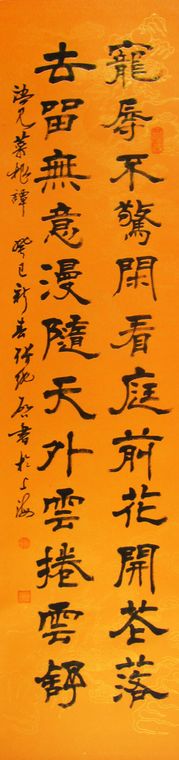 寵辱不驚閑看庭前花開花落
去留無意漫隨天外雲捲雲舒
語見菜根譚 癸巳新春 書於上海